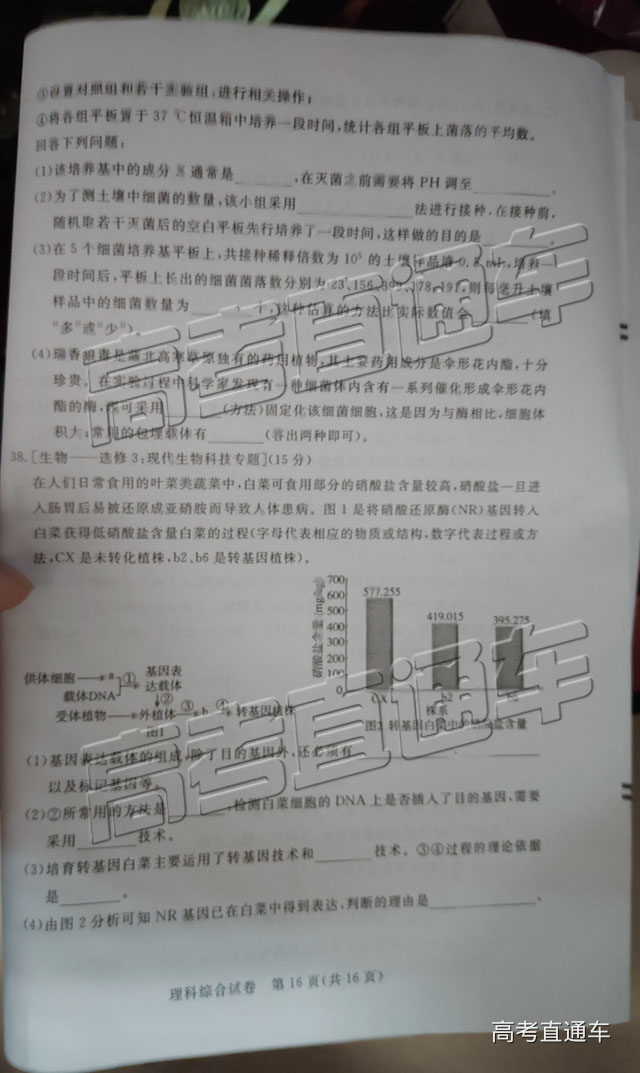 ③设置对照组和若干实验组,进行相关操作;
④将各组平板置于 37 ℃恒温箱中培养一段时间,统计各组平板上菌落的平均数。
回答下列问题:
(1)该培养基中的成分 X 通常是________,在灭菌之前需要将 PH 调至________。
(2)为了测土壤中细菌的数量,该小组采用________法进行接种,在接种前,
随机取若干灭菌后的空白平板先行培养了一段时间,这样做的目的是________。
(3)在 5 个细菌培养基平板上,共接种稀释倍数为 10⁵ 的土壤样品溶 0.5 mL,培养一
段时间后,平板上长出的细菌菌落数分别为 23、156、 178、191,则每毫升土壤
样品中的细菌数量为________个,这种估算的方法比实际数值会________(填
“多”或“少”)。
(4)瑞香狼毒是 北高寒草原独有的药用植物,其主要药用成分是伞形花内酯,十分
珍贵。在实验过程中科学家发现有一种细菌体内含有一系列催化形成伞形花内
酯的酶, 可采用________(方法)固定化该细菌细胞,这是因为与酶相比,细胞体
积大;常用的包埋载体有________(答出两种即可)。
38.[生物——选修 3:现代生物科技专题](15 分)
在人们日常食用的叶菜类蔬菜中,白菜可食用部分的硝酸盐含量较高,硝酸盐一旦进
入肠胃后易被还原成亚硝胺而导致人体患病。图 1 是将硝酸还原酶(NR)基因转入
白菜获得低硝酸盐含量白菜的过程(字母代表相应的物质或结构,数字代表过程或方
法,CX 是未转化植株,b2、b6 是转基因植株)。
硝酸盐含量(mg/kg)
700
600
500
400
300
200
100
0
577.255
419.015
395.275
CX b2
株系
图2 转基因白菜中 硝酸盐含量
供体细胞 a
载体DNA
①
基因表
达载体
②
受体植物 外植体 ③ b ④ 转基因植株
图1
(1)基因表达载体的组成,除了目的基因外,还必须有________
以及标记基因等。
(2)②所常用的方法是________,检测白菜细胞的 DNA 上是否插入了目的基因,需要
采用________技术。
(3)培育转基因白菜主要运用了转基因技术和________技术。③④过程的理论依据
是________。
(4)由图 2 分析可知 NR 基因已在白菜中得到表达,判断的理由是________。
理科综合试卷 第 16 页(共 16 页)
高考直通车
高考直通车
高考直通车